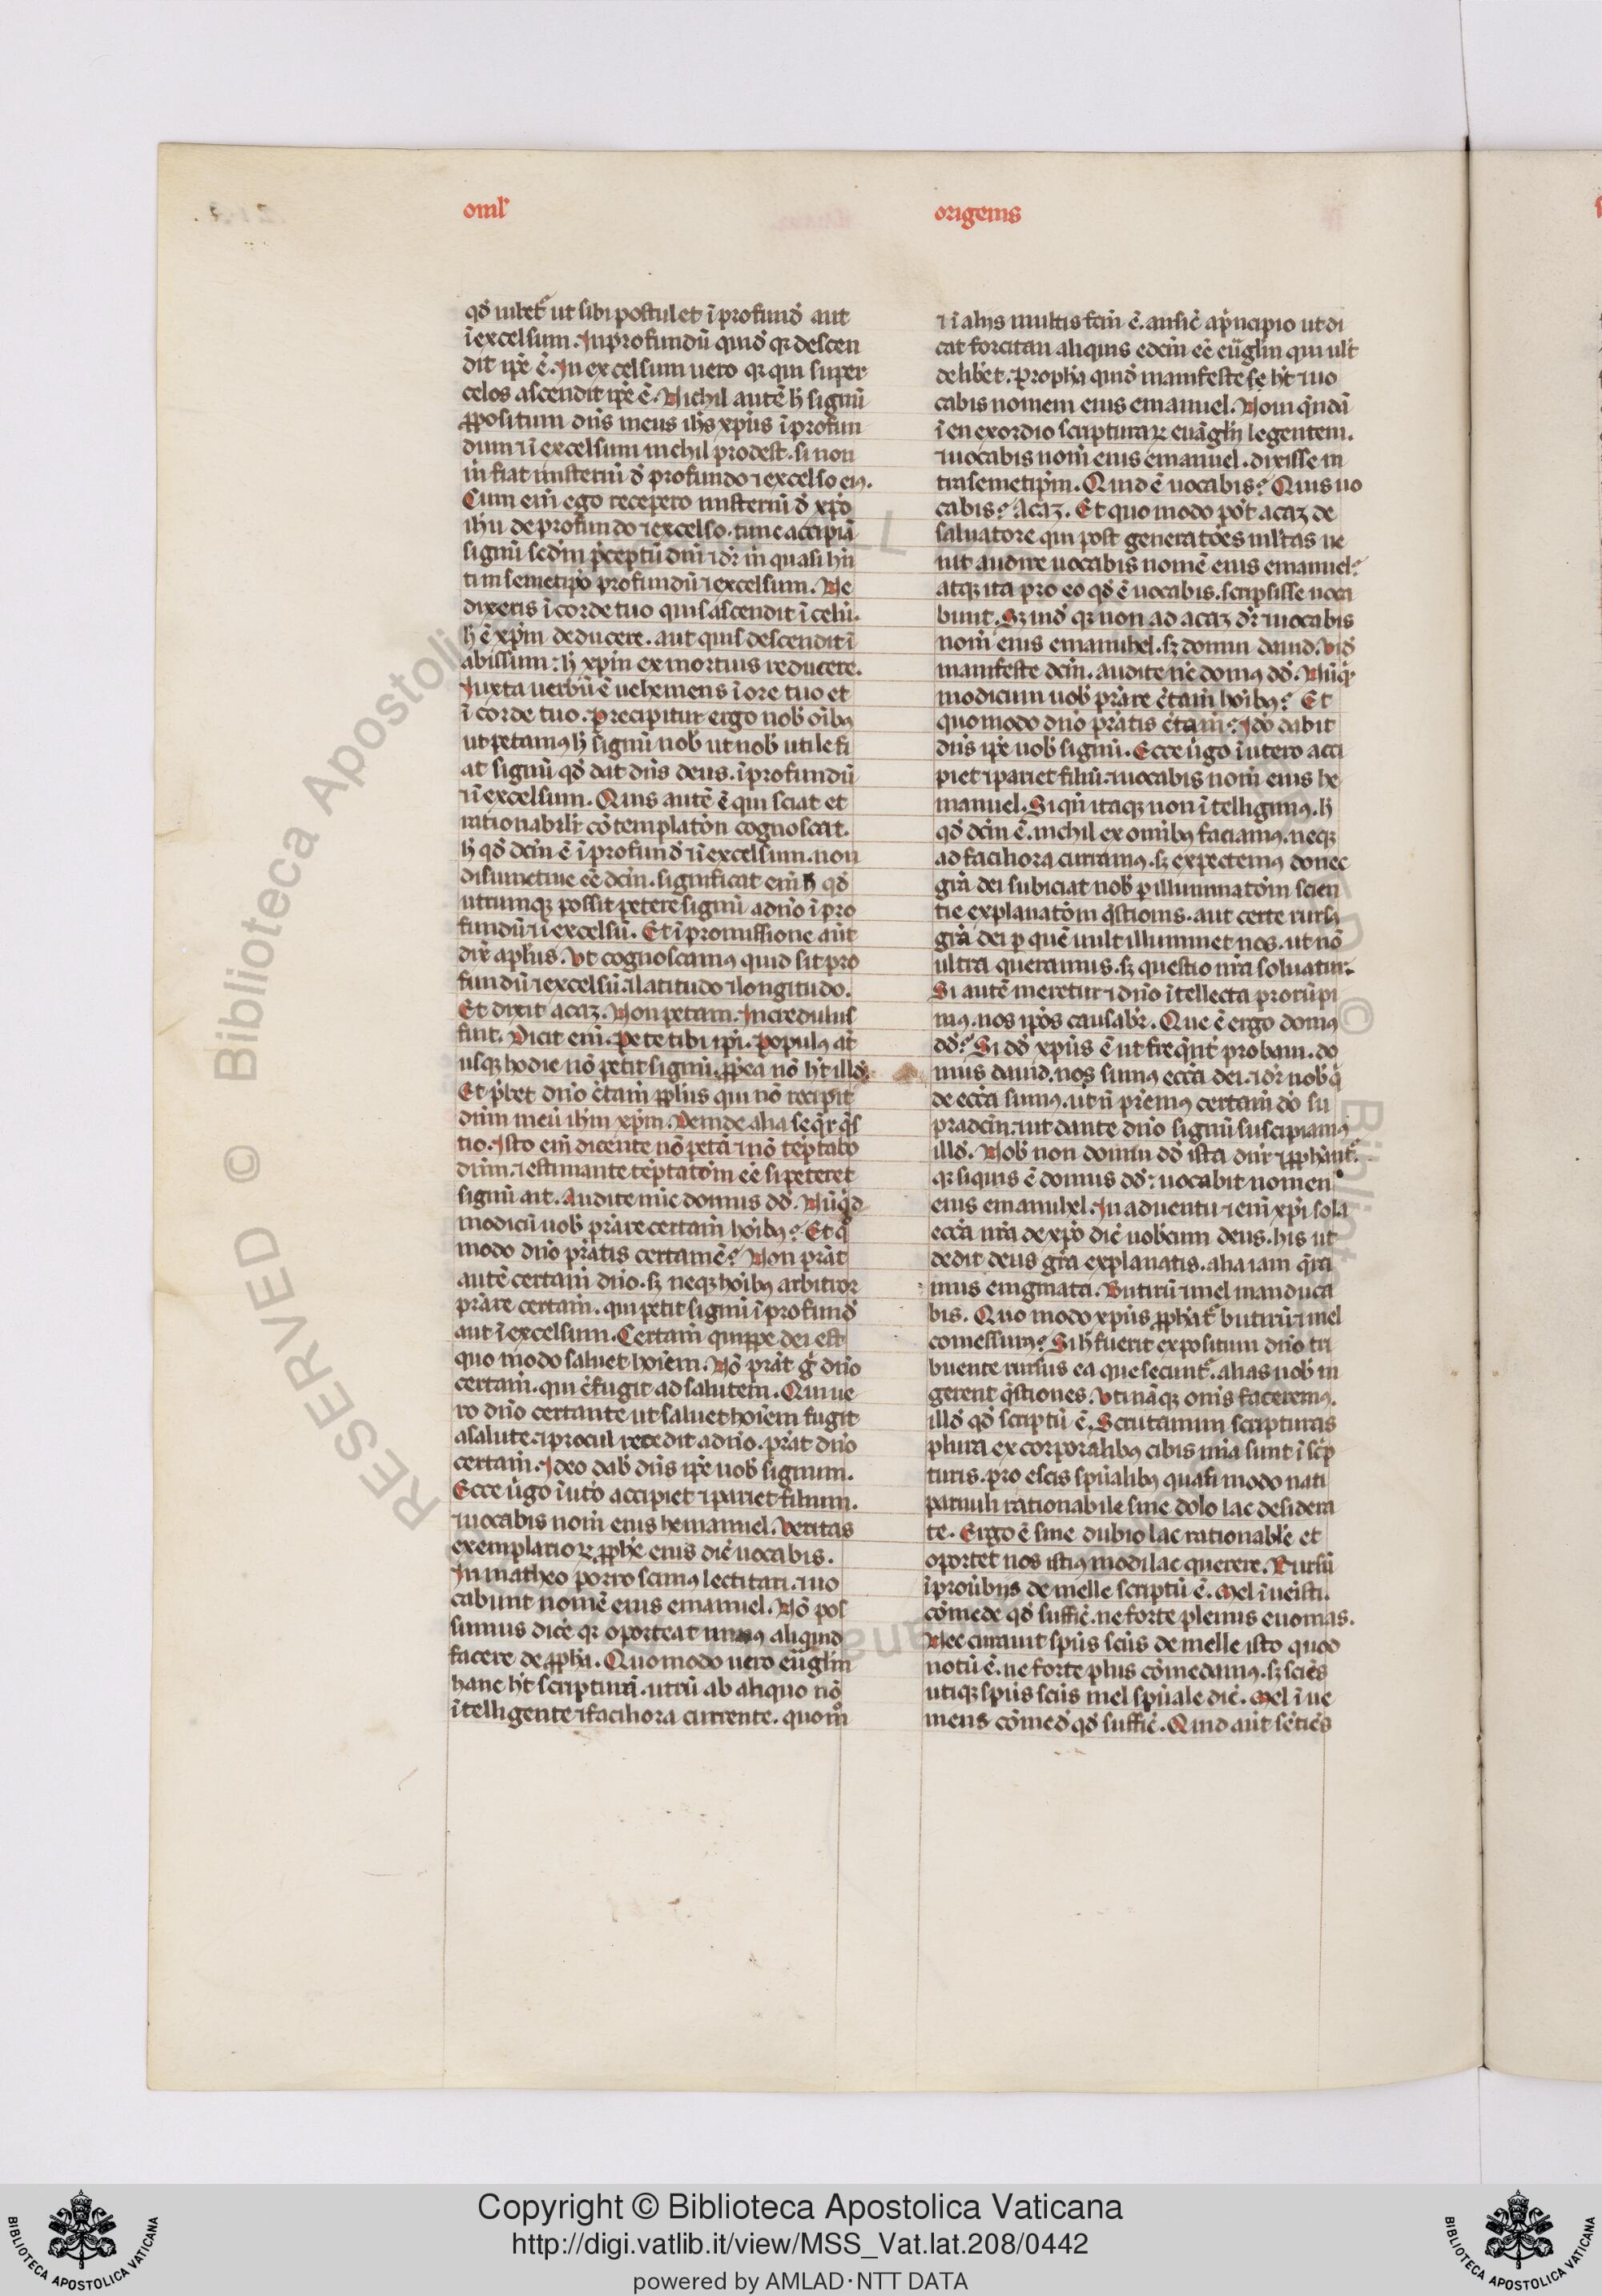 oml'
origenis
qđ iubet᷑ ut sibi postulet ĩ profunđ aut
ĩ excelsum. In profundũ quiđ qꝛ descen
dit ip̃e ẽ. In excelsum uero qꝛ qui super
celos ascendit ip̃e ẽ. Nichil autẽ h̃ signũ
ꝓpositum dñs meus ih̃s xp̃us ĩ profun
dum ⁊ ĩ excelsum nichil prodest. si non
m̃ fiat misteriũ đ profundo ⁊ excelso eiꝰ.
Cum eñ ego recepero misteriũ đ xp̃o
ih̃u de profundo ⁊ excelso. tunc accipiã
signũ sed̃m p̃ceptũ dñi ⁊ dr̃ m̃ quasi hñ
ti in semetip̃o profundũ ⁊ excelsum. Ne
dixeris ĩ corde tuo quis ascendit ĩ celũ.
h̃ ẽ xp̃m deducere. aut quis descendit ĩ
abissum: h̃ xp̃m ex mortuis reducere.
Iuxta uerbũ ẽ uehemens ĩ ore tuo et
ĩ corde tuo. Precipitur ergo nob̃ oĩbꝰ
ut petamꝰ h̃ signũ nob̃ ut nob̃ utile fi
at signũ qđ dat dñs deus. ĩ profundũ
⁊ ĩ excelsum. Quis autẽ ẽ qui sciat et
rationabilĩ cõtemplatõn cognoscat.
h̃ qđ dc̃m ẽ ĩ profunđ ⁊ ĩ excelsum. non
disiunctiue eẽ dc̃m. significat eñ h̃ qđ
utrumqꝫ possit petere signũ a dño ĩ pro
fundũ ⁊ ĩ excelsũ. Et ĩ promissione aũt
dix̃ apl̃us. Vt cognoscamꝰ quid sit pro
fundũ ⁊ excelsũ. ⁊ latitudo ⁊ longitudo.
Et dixit acaz. Non petam. Incredulus
fuit. Dicit eñ. Pete tibi ip̃i. Populꝰ aũt
usqꝫ hodie nõ petit signũ. ꝓp̃ea nõ h̃t illđ.
Et p̃bet dño c̃tam̃ ppl̃us qui nõ recipit
dñm meũ ih̃m xp̃m. Deinde alia seq̃r q̃s
tio. Isto eñ dicente nõ petã ⁊ nõ tẽptabo
dñm. ⁊ estimante tẽptatõm eẽ si peteret
signũ ait. Audite m̃e domus đđ. Nũq̃d
modicũ uob̃ p̃rare certam̃ hoĩbꝰ? Et q̊
modo dño p̃ratis certamẽ? Non p̃rat
autẽ certam̃ dño. sꝫ neqꝫ hoĩbꝰ arbitror
p̃rare certam̃. qui petit signũ ĩ profunđ
aut ĩ excelsum. Certam̃ quippe dei est
quo modo saluet hoĩem. Nõ p̃rat g̃ dño
certam̃. qui c̃fugit ad salutem. Qui ue
ro dño certante ut saluet hoĩem fugit
a salute. ⁊ procul recedit a dño. p̃rat dño
certam̃. Ideo dab̃ dñs ip̃e uob̃ signum.
Ecce ũgo ĩ uto accipiet ⁊ pariet filium.
⁊ uocabis nom̃ eius hemanuel. Veritas
exemplarioꝝ ꝓph̃e eius dic̃ uocabis.
In matheo porro scimꝰ lectitari. ⁊ uo
cabunt nomẽ eius emanuel. Nõ pos
sumus dic̃e qꝛ oporteat minꝰ aliquid
facere de ꝓph̃a. Quomodo uero eũglm̃
hanc h̃t scripturã. utrũ ab aliquo nõ
ĩtelligente ⁊ faciliora currente. quom̊
⁊ ĩ alijs multis fcm̃ ẽ. an sic̃ a p̃ncipio ut di
cat forcitan aliquis edcm̃ eẽ eũglm̃ qui ult̃
delib̃et. Proph̃a quiđ manifeste se h̃t ⁊ uo
cabis nomem eius emanuel. Nom q̃ndã
ĩ en exordio scripturaꝝ euãglij legentem.
⁊ uocabis nom̃ eius emanuel. dixisse in
tra semetip̃m. Quid ẽ uocabis? Quis uo
cabis? Acaz. Et quo modo pot̃ acaz de
saluatore qui post generatões ml̃tas ue
nit audire uocabis nomẽ eius emanuel?
atqꝫ ita pro eo qđ ẽ uocabis. scripsisse uoca
bunt. Sꝫ uiđ qꝛ non ad acaz dr̃ ⁊ uocabis
nom̃ eius emanuhel. sꝫ domui dauid. Viđ
manifeste dcm̃. audite ne domꝰ đđ. Nũq̃
modicum uob̃ p̃rare c̃tam̃ hoĩbꝰ? Et
quo modo dño p̃ratis c̃tam̃? Ido dabit
dñs ip̃e uob̃ signũ. Ecce ũgo ĩ utero acci
piet ⁊ pariet filiũ. ⁊ uocabis nom̃ eius he
manuel. Si qñ itaqꝫ non ĩtelligimꝰ. h̃
qđ dcm̃ ẽ. nichil ex omĩbꝰ faciamꝰ. neqꝫ
ad faciliora curramꝰ. sꝫ expectemꝰ donec
gr̃a dei subiciat nob̃ ꝑ illuminatõm scien
tie explanatõm q̃stionis. aut certe rursꝰ
gr̃a dei ꝑ quẽ uult illuminet nos. ut nõ
ultra queramus. sꝫ questio nr̃a soluatur.
Si autẽ meretur ⁊ dño ĩtellecta prorũpi
mꝰ. nos ip̃os causabr̃. Que ẽ ergo domꝰ
đđ? Si đđ xp̃us ẽ ut freq̃nt̃ probaui. do
mus dauid. nos sumꝰ ecc̃a dei. ⁊ dr̃ nob̃ q̃
de ecc̃a sumꝰ. ut ñ p̃remꝰ certam̃ dõ su
pradcm̃. ⁊ ut dante dño signũ suscipiamꝰ
illđ. Nob̃ non domui đđ ista dñr ⁊ ꝓph̃ant᷑.
qꝛ siquis ẽ domus đđ: uocabit nomen
eius emanuhel. In aduentu ⁊ eñ xp̃i sola
ecc̃a nr̃a de xp̃o dic̃ uob̃cum deus. his ut
dedit deus gr̃a explanatis. alia iam q̃ra
mus enigmata. Butirũ ⁊ mel manduca
bis. Quo modo xp̃us ꝓph̃at᷑ butirũ ⁊ mel
comessurꝰ? Si h̃ fuerit expositum dño tri
buente rursus ea que secunt᷑. alias nob̃ in
gerent q̃stiones. Vtinãqꝫ om̃s faceremꝰ.
illđ qđ scriptũ ẽ. Scrutamini scripturas
plura ex corporalibꝰ cibis nn̄a sunt ĩ sc̃p
turis. pro escis sp̃ualibꝰ quasi modo nati
paruuli rationabile sine dolo lac desidera
te. Ergo ẽ sine dubio lac rationabĩe et
oportet nos istiꝰ modi lac querere. Rursũ
ĩ prouũbijs de melle scriptũ ẽ. Mel ĩueĩsti.
cõmede qđ suffic̃. ne forte plenus euomas.
Nec curauit sp̃us sc̃us de melle isto quod
notũ ẽ. ne forte plus cõmedamꝰ. sꝫ sciẽs
utiqꝫ sp̃us sc̃us mel sp̃uale dic̃. Mel ĩ ue
niens cõmedẽ qđ suffic̃. Quid aũt sẽtiẽs
Copyright © Biblioteca Apostolica Vaticana
http://digi.vatlib.it/view/MSS_Vat.lat.208/0442
powered by AMLAD·NTT DATA
BIBLIOTECA APOSTOLICA VATICANA
BIBLIOTECA APOSTOLICA VATICANA